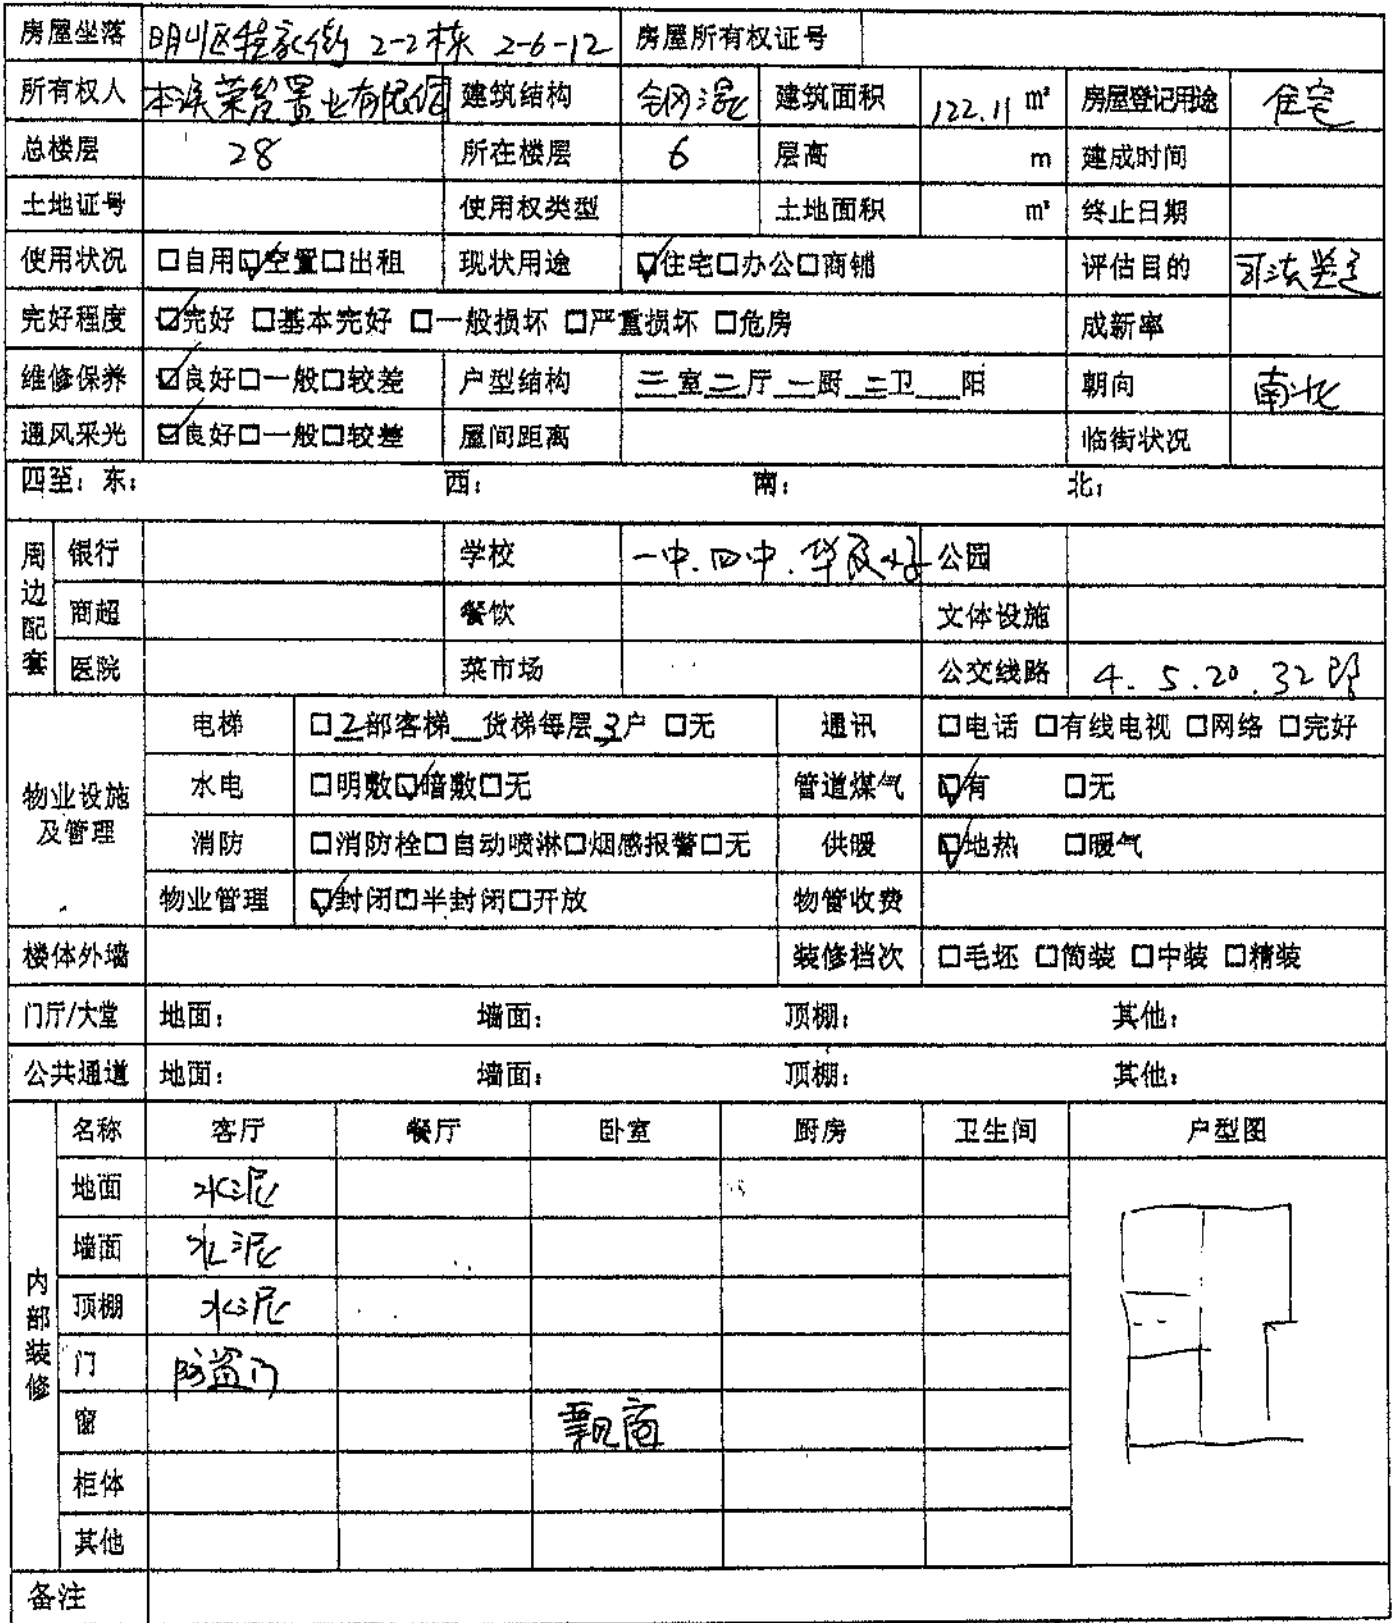 房屋坐落 明山区程家街 2-2栋 2-6-12 房屋所有权证号
所有权人 本溪荣 置业有限 建筑结构 钢混 建筑面积 122.11 m² 房屋登记用途 住宅
总楼层 28 所在楼层 6 层高 m 建成时间
土地证号 使用权类型 土地面积 m² 终止日期
使用状况 □自用☑空置□出租 现状用途 ☑住宅□办公□商铺 评估目的 司法鉴定
完好程度 ☑完好 □基本完好 □一般损坏 □严重损坏 □危房 成新率
维修保养 ☑良好□一般□较差 户型结构 三室二厅一厨二卫__阳 朝向 南北
通风采光 ☑良好□一般□较差 屋间距离 临街状况
四至：东： 西： 南： 北：
周边配套 银行 学校 一中.四中. 公园
商超 餐饮 文体设施
医院 菜市场 公交线路 4. 5. 20. 32路
物业设施及管理 电梯 □2部客梯__货梯每层3户 □无 通讯 □电话 □有线电视 □网络 □完好
水电 □明敷☑暗敷□无 管道煤气 ☑有 □无
消防 □消防栓□自动喷淋□烟感报警□无 供暖 ☑地热 □暖气
物业管理 ☑封闭□半封闭□开放 物管收费
楼体外墙 装修档次 □毛坯 □简装 □中装 □精装
门厅/大堂 地面： 墙面： 顶棚： 其他：
公共通道 地面： 墙面： 顶棚： 其他：
内部装修 名称 客厅 餐厅 卧室 厨房 卫生间 户型图
地面 水泥
墙面 水泥
顶棚 水泥
门 防盗门
窗 飘窗
柜体
其他
备注